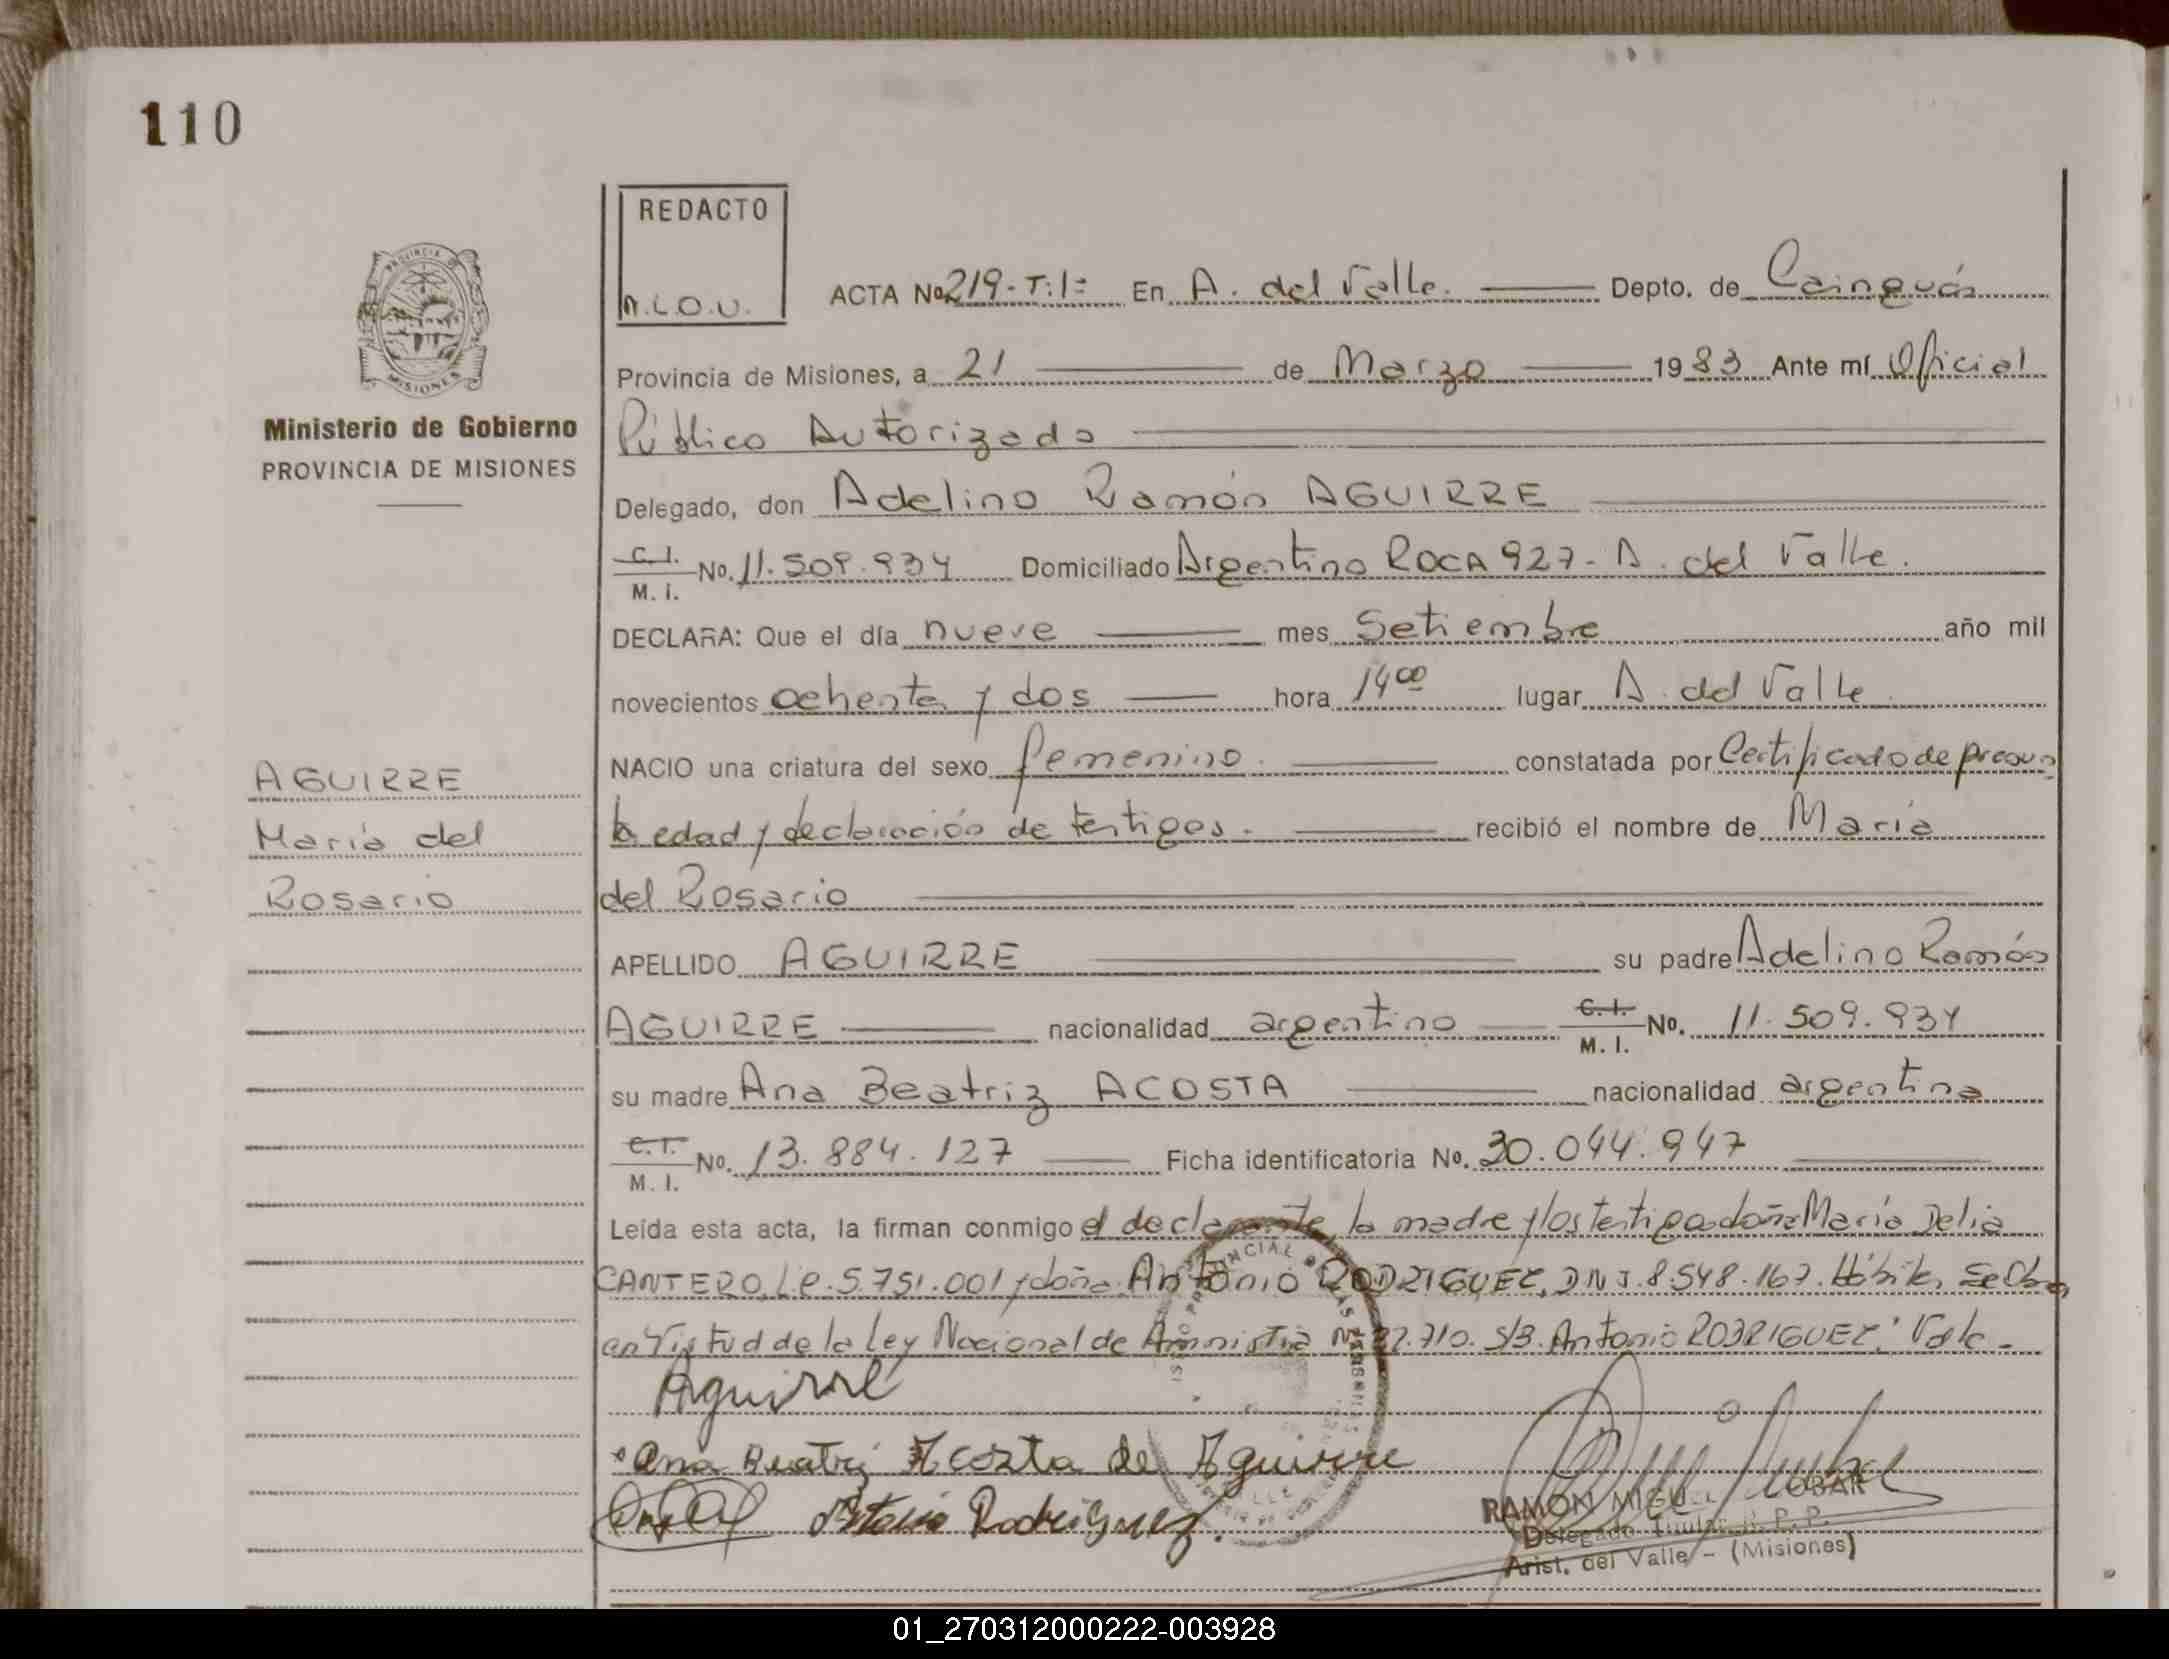 110
REDACTO
M.L.O.U.
ACTA No. 219-T:1= En A. del Valle. Depto. de Cainguás
PROVINCIA DE
MISIONES
Provincia de Misiones, a 21 de Marzo 1983 Ante mí Oficial
Ministerio de Gobierno
PROVINCIA DE MISIONES
Público Autorizado
Delegado, don Adelino Ramón AGUIRRE
C.I. M.I. No. 11.509.934 Domiciliado Argentino ROCA 927- A. del Valle.
DECLARA: Que el día nueve mes Setiembre año mil
novecientos ochenta y dos hora 14 00 lugar A. del Valle
NACIO una criatura del sexo femenino. constatada por Certificado de presun
AGUIRRE
María del
Rosario
ta edad y declaración de testigos. recibió el nombre de María
del Rosario
APELLIDO AGUIRRE su padre Adelino Ramón
AGUIRRE nacionalidad argentino C.I. M.I. No. 11.509.934
su madre Ana Beatriz ACOSTA nacionalidad argentina
C.I. M.I. No. 13.884.127 Ficha identificatoria No. 30.044.947
Leída esta acta, la firman conmigo el declarante, la madre y los testigos doña María Delia
CANTERO, L.C. 5.751.001 y doña Antonio RODRIGUEZ, DNI. 8.548.167. Hábiles
en Virtud de la Ley Nacional de Amnistia Nº 22.710. S/B. Antonio RODRIGUEZ: Vale.
Aguirre
Ana Beatriz Acosta de Aguirre
Antonio Rodriguez.
RAMON MIGUEL
Delegado Titular R. P. P.
Arist. del Valle - (Misiones)
01_270312000222-003928